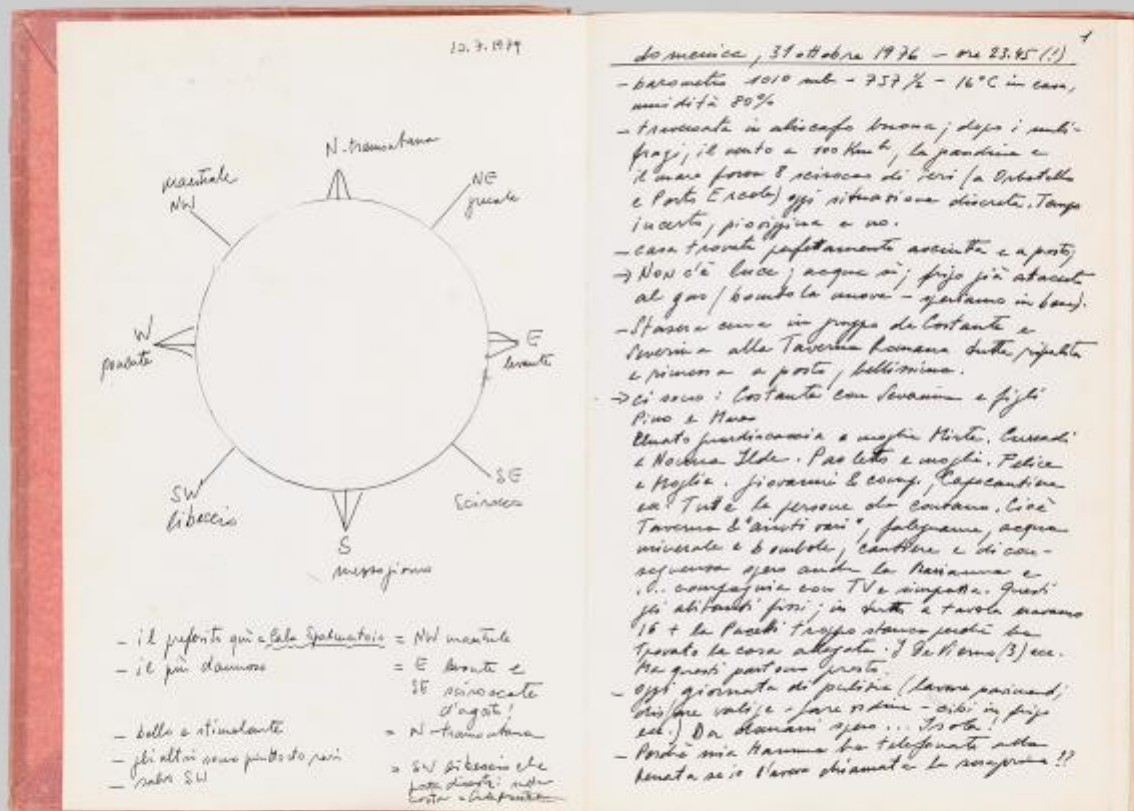 12.7.1979
N-tramontana
maestrale
NW
NE
grecale
W
ponente
E
levante
SW
libeccio
SE
Scirocco
S
mezzogiorno
- il preferito qui a Cala Spalmatoio = NW maestrale
- il più dannoso = E levante e
SE sciroccate
d'agosto!
- bello e stimolante = N-tramontana
- gli altri sono piuttosto rari
- salvo SW = SW libeccio che
1
domenica, 31 ottobre 1976 - ore 23.45 (!)
- barometro 1010 mb - 757 ½ - 16°C in casa,
umidità 80%
- traversata in aliscafo buona; dopo i
il vento a 100 Kmh, la grandine e
il mare forza 8 scirocco di ieri (a Orbetello
e Porto Ercole) oggi situazione discreta. Tempo
incerto, pioviggina e no.
- casa trovata perfettamente asciutta e a posto;
→ NON c'è luce; acqua sì; frigo già attaccato
al gas (bombola nuova - speriamo in bene).
- Stasera cena in gruppo da Costante e
Severina alla Taverna Romana tutta ripulita
e rimessa a posto, bellissima.
→ ci sono: Costante con Severina e figli
Pino e
Renato guardiacaccia e moglie Mirta.
e Nonna Ilde. Paoletto e moglie. Felice
e Moglie. Giovanni & comp.
ecc. Tutte le persone che contano. Cioè
Taverna & "aiuti vari", falegname, acqua
minerale e bombole, cantiere e di con-
seguenza spero anche la Marianna e
compagnia con TV e simpatia. Questi
gli abitanti fissi; in tutto a tavola eravamo
16 + la troppo stanca perché ha
trovato la casa allagata. I (3) ecc.
Ma questi partono presto.
- oggi giornata di pulizia (lavare pavimenti,
disfare valigie - fare ordine - cibi in frigo
ecc.) Da domani spero ... Isola!
- Perché mia Mamma ha telefonato alla
Renata se io l'avevo chiamata la sera prima!!?